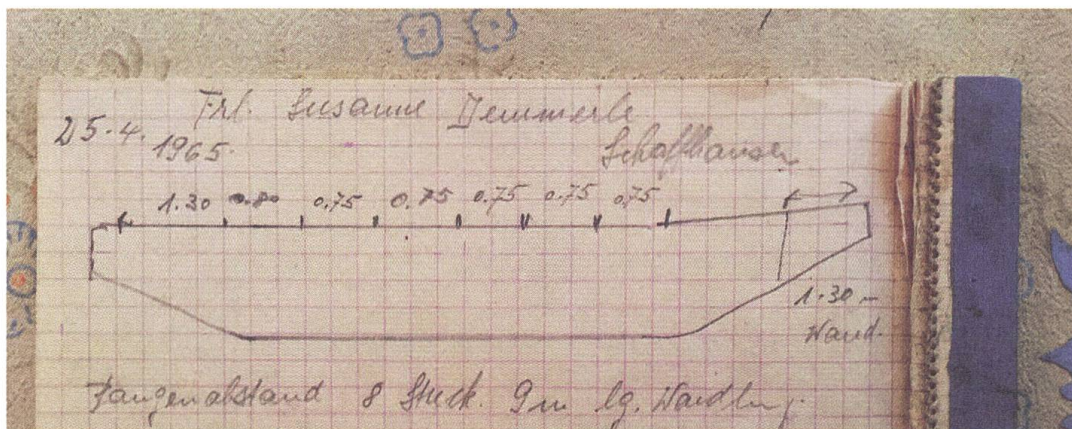 Frl. Susanne Demmerle
25.4.
1965.
Schaffhausen
1.30 0.80 0.75 0.75 0.75 0.75 0.75
1.30 –
Wand.
Zangenabstand 8 Stück. 9 m lg. Waidling.